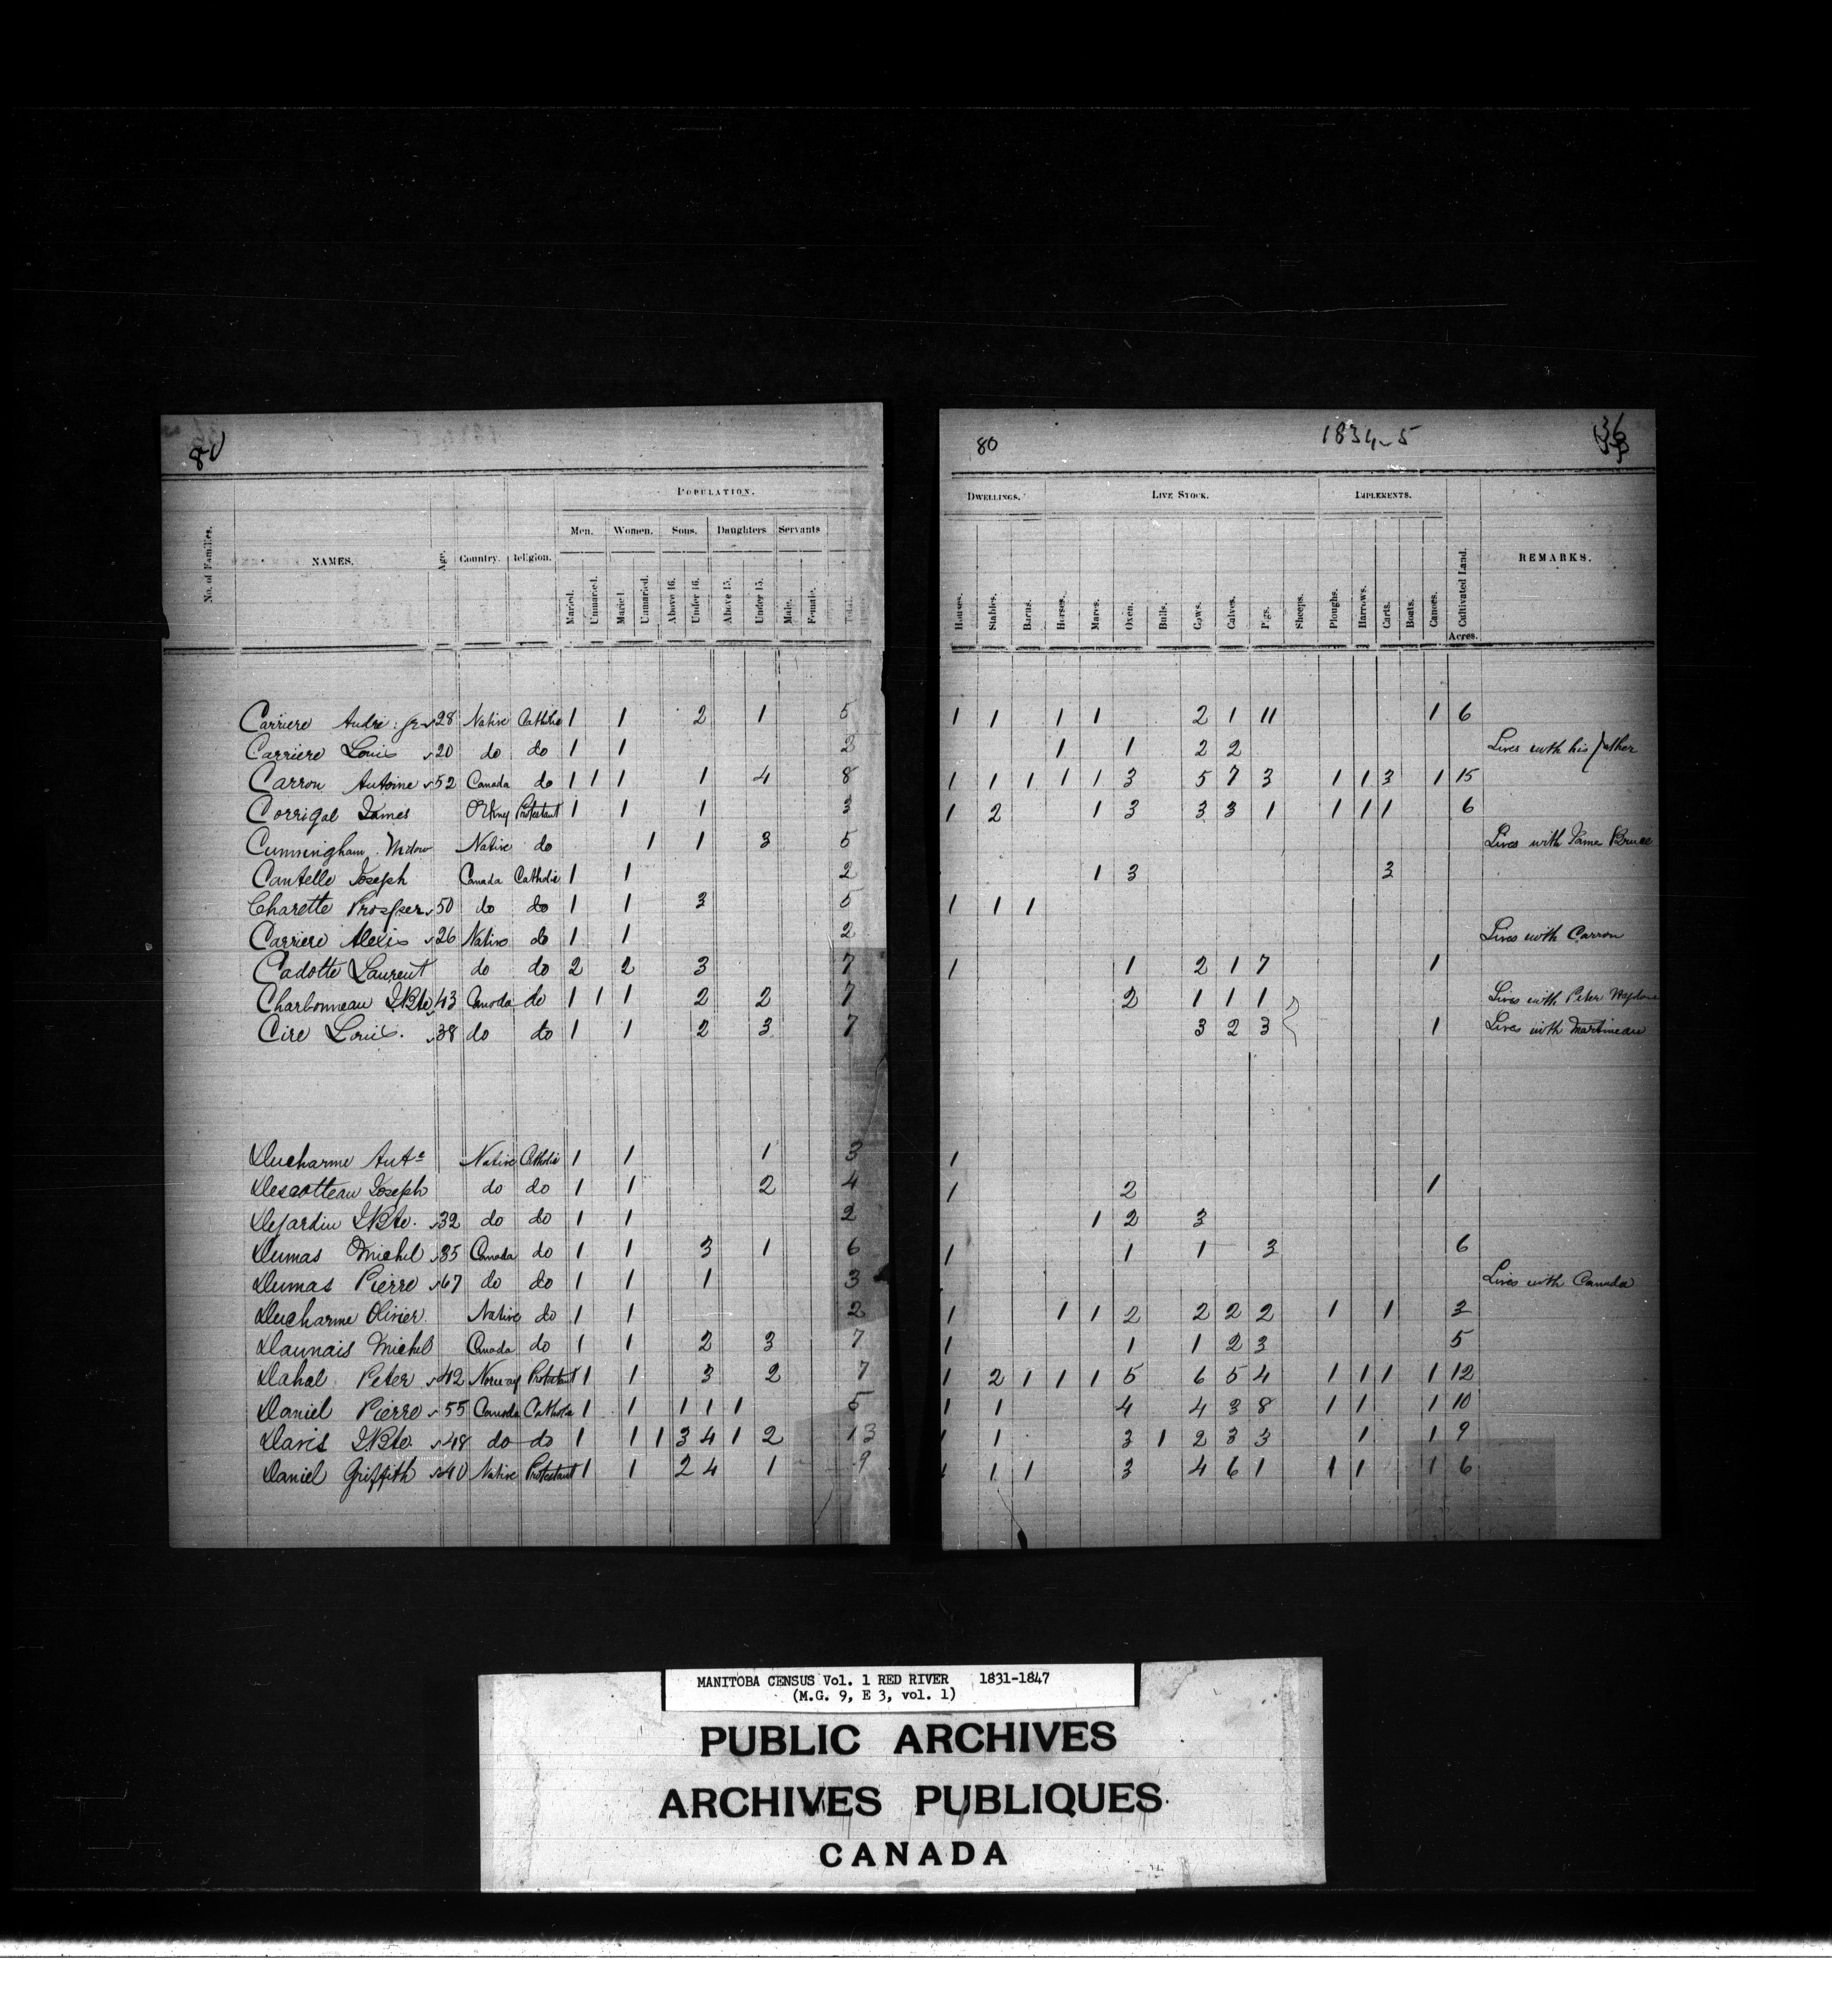 80
POPULATION.
No. of Families. NAMES. Age. Country. Religion. Men. Women. Sons. Daughters Servants
Maried. Unmaried. Maried. Unmaried. Above 16. Under 16. Above 15. Under 15. Male. Female. Total.
Carriere Andre: jr 28 Native Catholic 1 1 2 1 5
Carriere Louis 20 do do 1 1 2
Carron Antoine 52 Canada do 1 1 1 1 4 8
Corrigal James Orkney Protestant 1 1 1 3
Cunningham Widow Native do 1 1 3 5
Cantelle Joseph Canada Catholic 1 1 2
Charette Prosper 50 do do 1 1 3 5
Carriere Alexis 26 Native do 1 1 2
Cadotte Laurent do do 2 2 3 7
Charbonneau J.Bte 43 Canada do 1 1 1 2 2 7
Cire Louis. 38 do do 1 1 2 3 7
Ducharme Ant^e Native Catholic 1 1 1 3
Descotteau Joseph do do 1 1 2 4
Dejardin J.Bte. 32 do do 1 1 2
Dumas Michel 35 Canada do 1 1 3 1 6
Dumas Pierre 67 do do 1 1 1 3
Ducharme Olivier Native do 1 1 2
Daunais Michel Canada do 1 1 2 3 7
Dahal Peter 42 Norway Protestant 1 1 3 2 7
Daniel Pierre 55 Canada Catholic 1 1 1 1 1 5
Davis J.Bte. 48 do do 1 1 1 3 4 1 2 13
Daniel Griffith 40 Native Protestant 1 1 2 4 1 9
80 1834-5 36
DWELLINGS. LIVE STOCK. IMPLEMENTS.
Houses. Stables. Barns. Horses. Mares. Oxen. Bulls. Cows. Calves. Pigs. Sheeps. Ploughs. Harrows. Carts. Boats. Canoes. Cultivated Land. REMARKS.
Acres.
1 1 1 1 2 1 11 1 6
1 1 2 2 Lives with his father
1 1 1 1 1 3 5 7 3 1 1 3 1 15
1 2 1 3 3 3 1 1 1 1 6
Lives with Jame Bruce
1 3 3
1 1 1
Lives with Carron
1 1 2 1 7 1
2 1 1 1 Lives with Peter
3 2 3 1 Lives with Martineau
1
1 2 1
1 2 3
1 1 1 3 6
Lives with Canada
1 1 1 2 2 2 2 1 1 3
1 1 1 2 3 5
1 2 1 1 1 5 6 5 4 1 1 1 1 12
1 1 4 4 3 8 1 1 1 10
1 1 3 1 2 3 3 1 1 9
1 1 1 3 4 6 1 1 1 1 6
MANITOBA CENSUS Vol. 1 RED RIVER 1831-1847
(M.G. 9, E 3, vol. 1)
PUBLIC ARCHIVES
ARCHIVES PUBLIQUES
CANADA